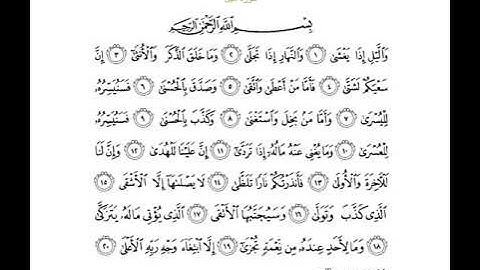 بِسْمِ اللَّهِ الرَّحْمَٰنِ الرَّحِيمِ
وَاللَّيْلِ إِذَا يَغْشَىٰ ١ وَالنَّهَارِ إِذَا تَجَلَّىٰ ٢ وَمَا خَلَقَ الذَّكَرَ وَالْأُنثَىٰ ٣ إِنَّ
سَعْيَكُمْ لَشَتَّىٰ ٤ فَأَمَّا مَنْ أَعْطَىٰ وَاتَّقَىٰ ٥ وَصَدَّقَ بِالْحُسْنَىٰ ٦ فَسَنُيَسِّرُهُ
لِلْيُسْرَىٰ ٧ وَأَمَّا مَنْ بَخِلَ وَاسْتَغْنَىٰ ٨ وَكَذَّبَ بِالْحُسْنَىٰ ٩ فَسَنُيَسِّرُهُ
لِلْعُسْرَىٰ ١٠ وَمَا يُغْنِي عَنْهُ مَالُهُ إِذَا تَرَدَّىٰ ١١ إِنَّ عَلَيْنَا لَلْهُدَىٰ ١٢ وَإِنَّ لَنَا
لَلْآخِرَةَ وَالْأُولَىٰ ١٣ فَأَنذَرْتُكُمْ نَارًا تَلَظَّىٰ ١٤ لَا يَصْلَاهَا إِلَّا الْأَشْقَى ١٥
الَّذِي كَذَّبَ وَتَوَلَّىٰ ١٦ وَسَيُجَنَّبُهَا الْأَتْقَى ١٧ الَّذِي يُؤْتِي مَالَهُ يَتَزَكَّىٰ
١٨ وَمَا لِأَحَدٍ عِندَهُ مِن نِّعْمَةٍ تُجْزَىٰ ١٩ إِلَّا ابْتِغَاءَ وَجْهِ رَبِّهِ الْأَعْلَىٰ ٢٠